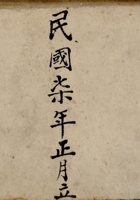 民國柒年正月立